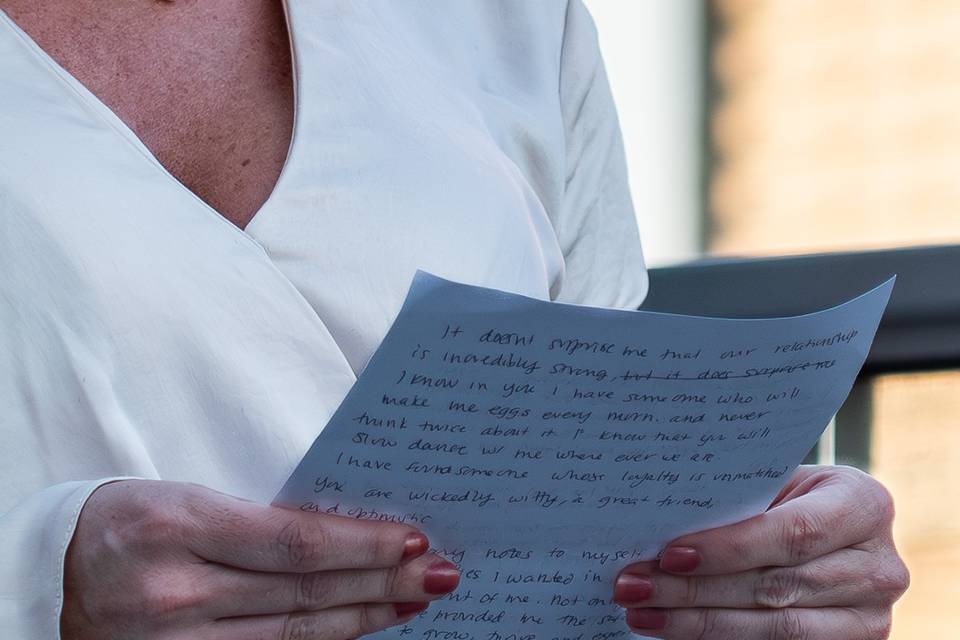 It doesnt surprise me that our relationship
is incredibly strong, but it does surprise me
I know in you I have someone who will
make me eggs every morn. and never
think twice about it. I know that you will
slow dance w/ me where ever we are
I have found someone whose loyalty is unmatched
You are wickedly witty, a great friend,
and optimistic
notes to myself
I wanted in
of me. not on
provided me the
to grow, and